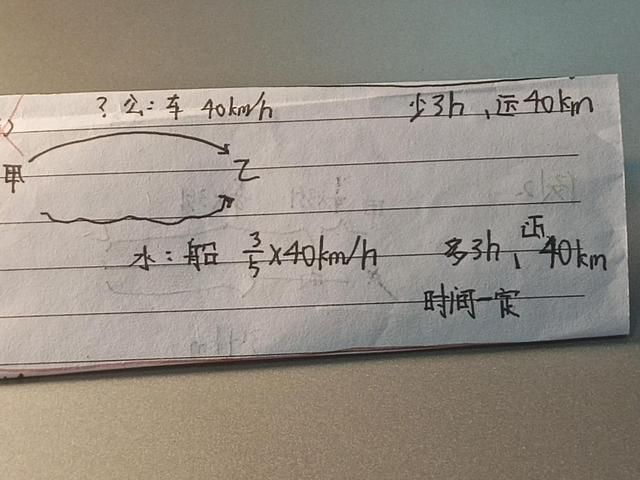 ? 公: 车 40km/h 少3h、远40km
甲 乙
水: 船 3/5×40km/h 多3h、近40km
时间一定